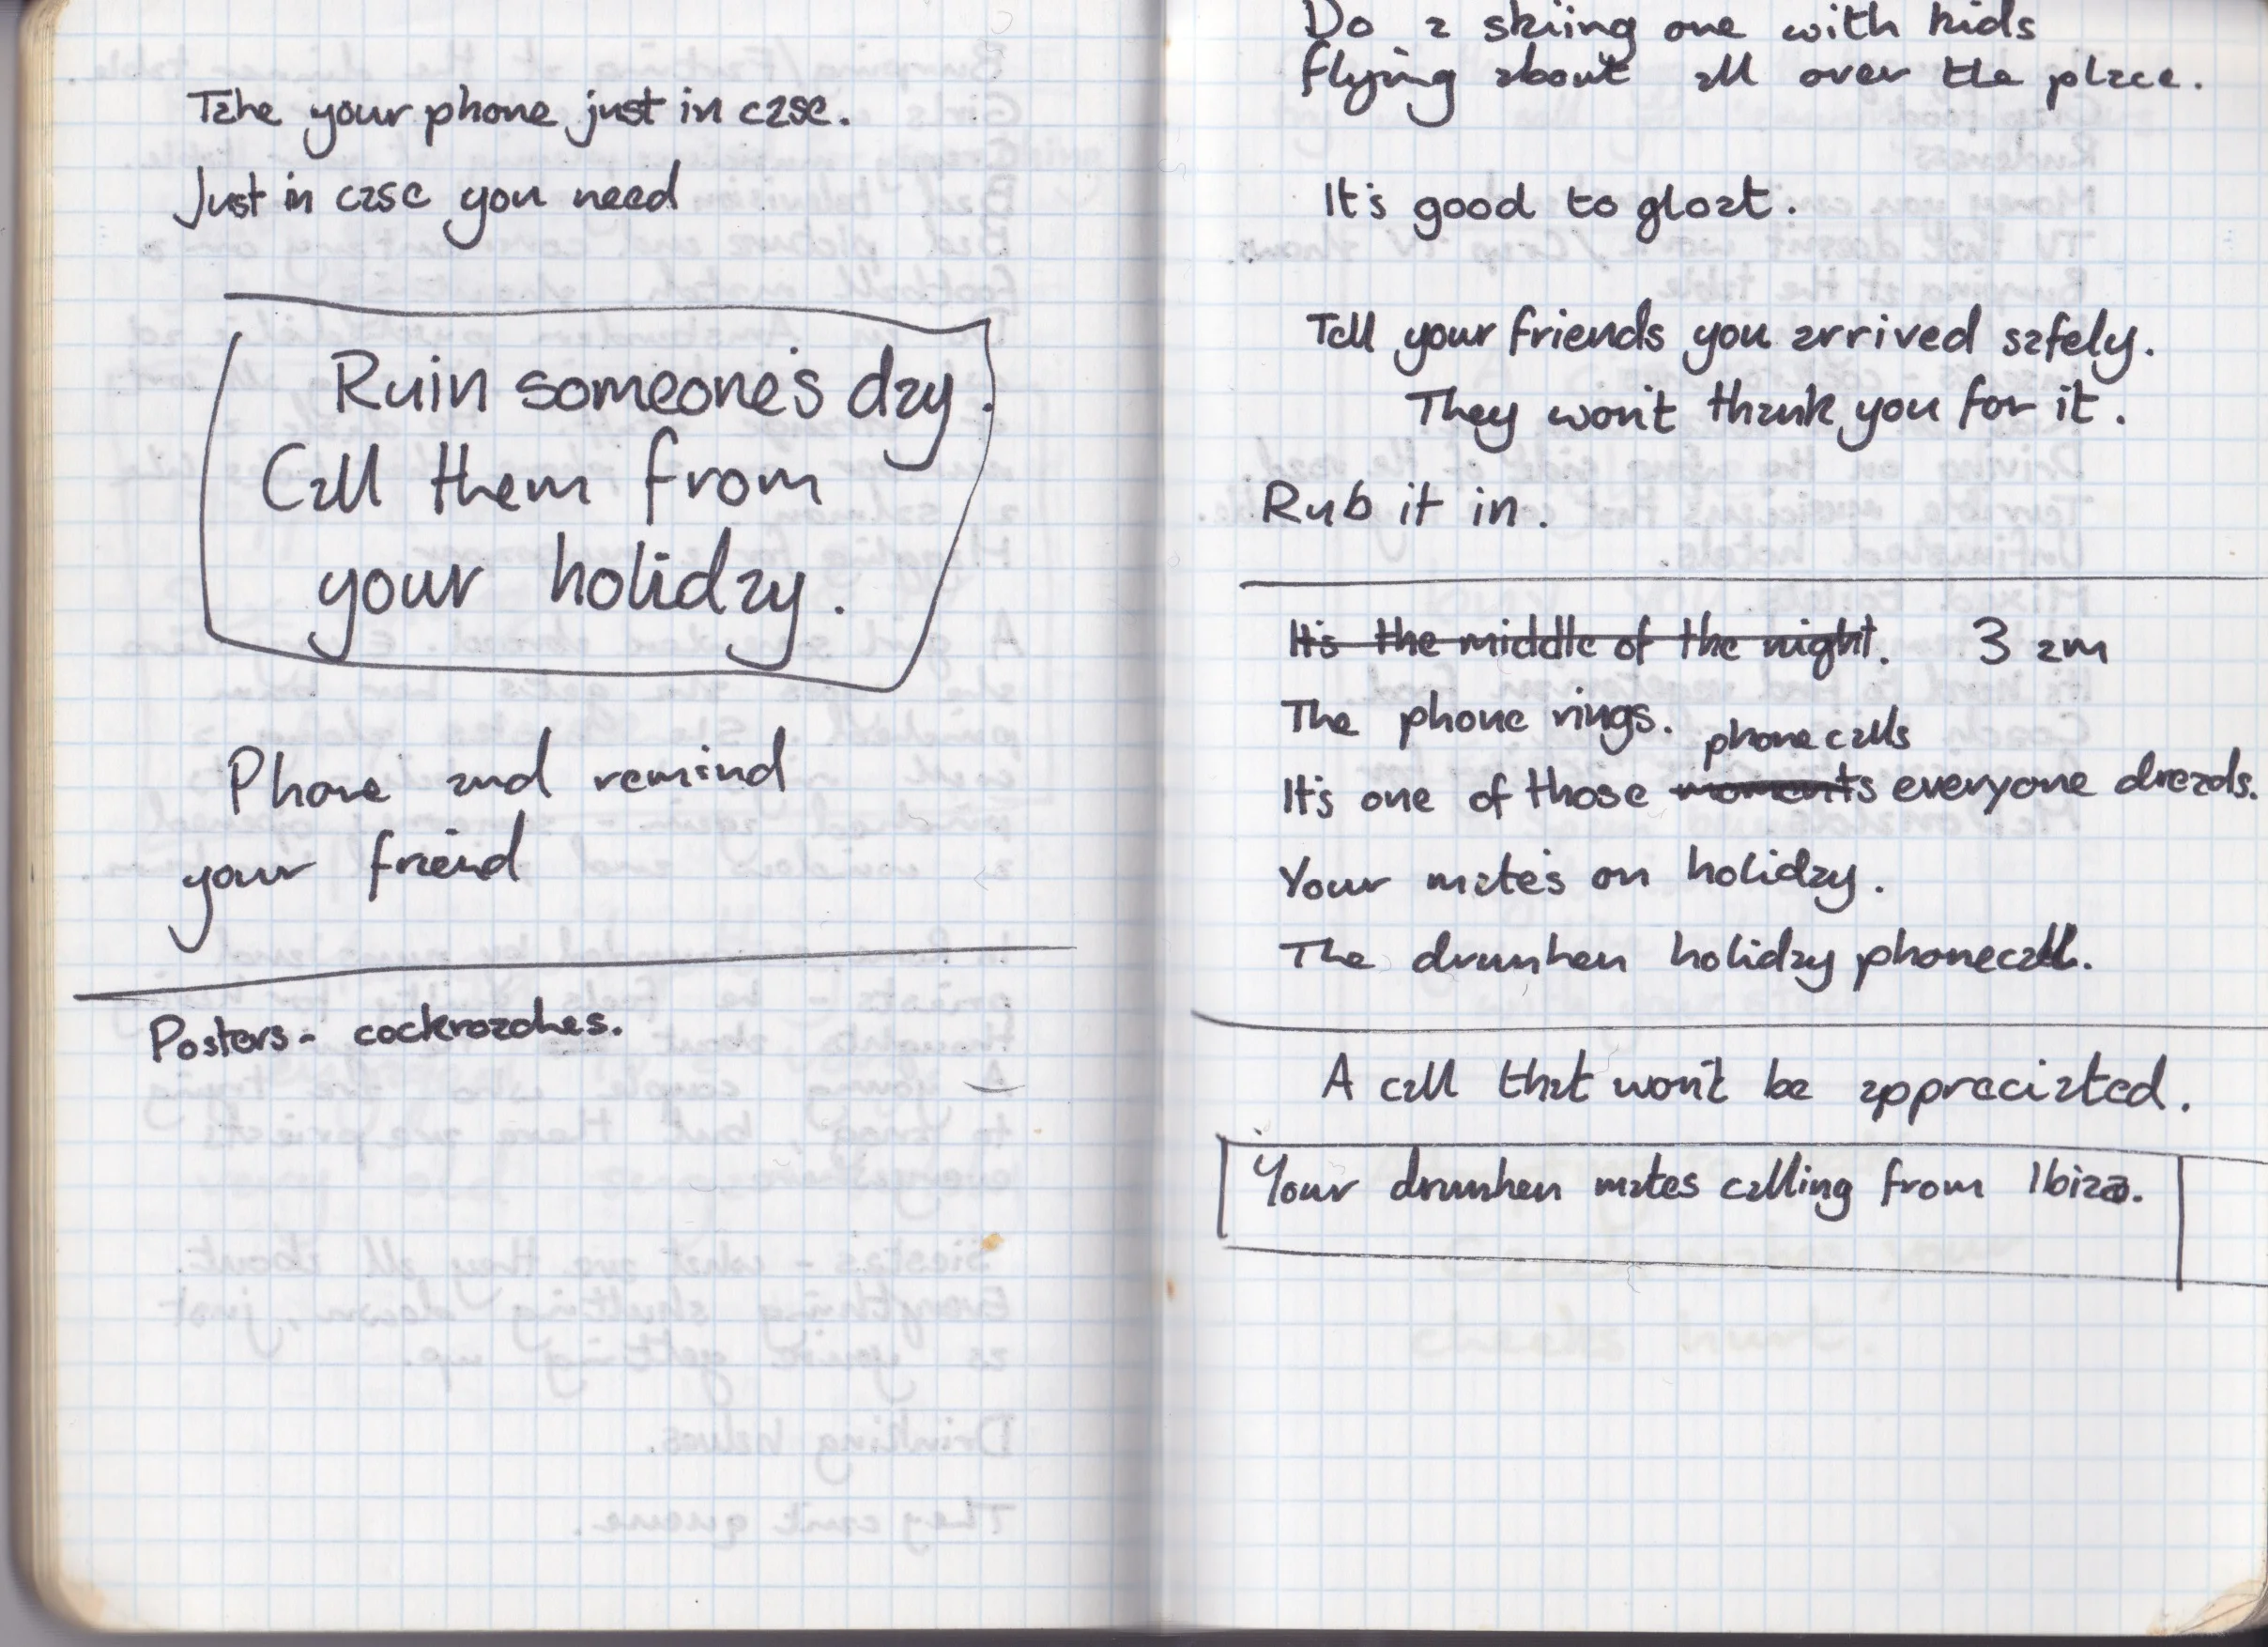 Take your phone just in case.
Just in case you need
Ruin someone's day.
Call them from
your holiday.
Phone and remind
your friend
Posters - cockroaches.
Do a skiing one with kids
flying about all over the place.
It's good to gloat.
Tell your friends you arrived safely.
They won't thank you for it.
Rub it in.
It's the middle of the night. 3 am
The phone rings.
phone calls
It's one of those moments everyone dreads.
Your mate's on holiday.
The drunken holiday phonecall.
A call that won't be appreciated.
Your drunken mates calling from Ibiza.